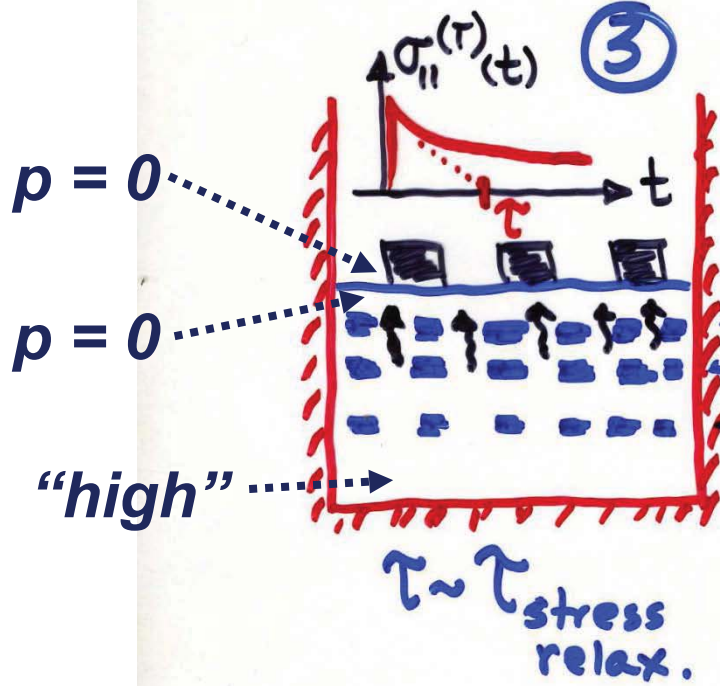 σ₁₁⁽ᵀ⁾(t)
③
t
τ
p = 0
p = 0
“high”
τ ~ τ stress
relax.